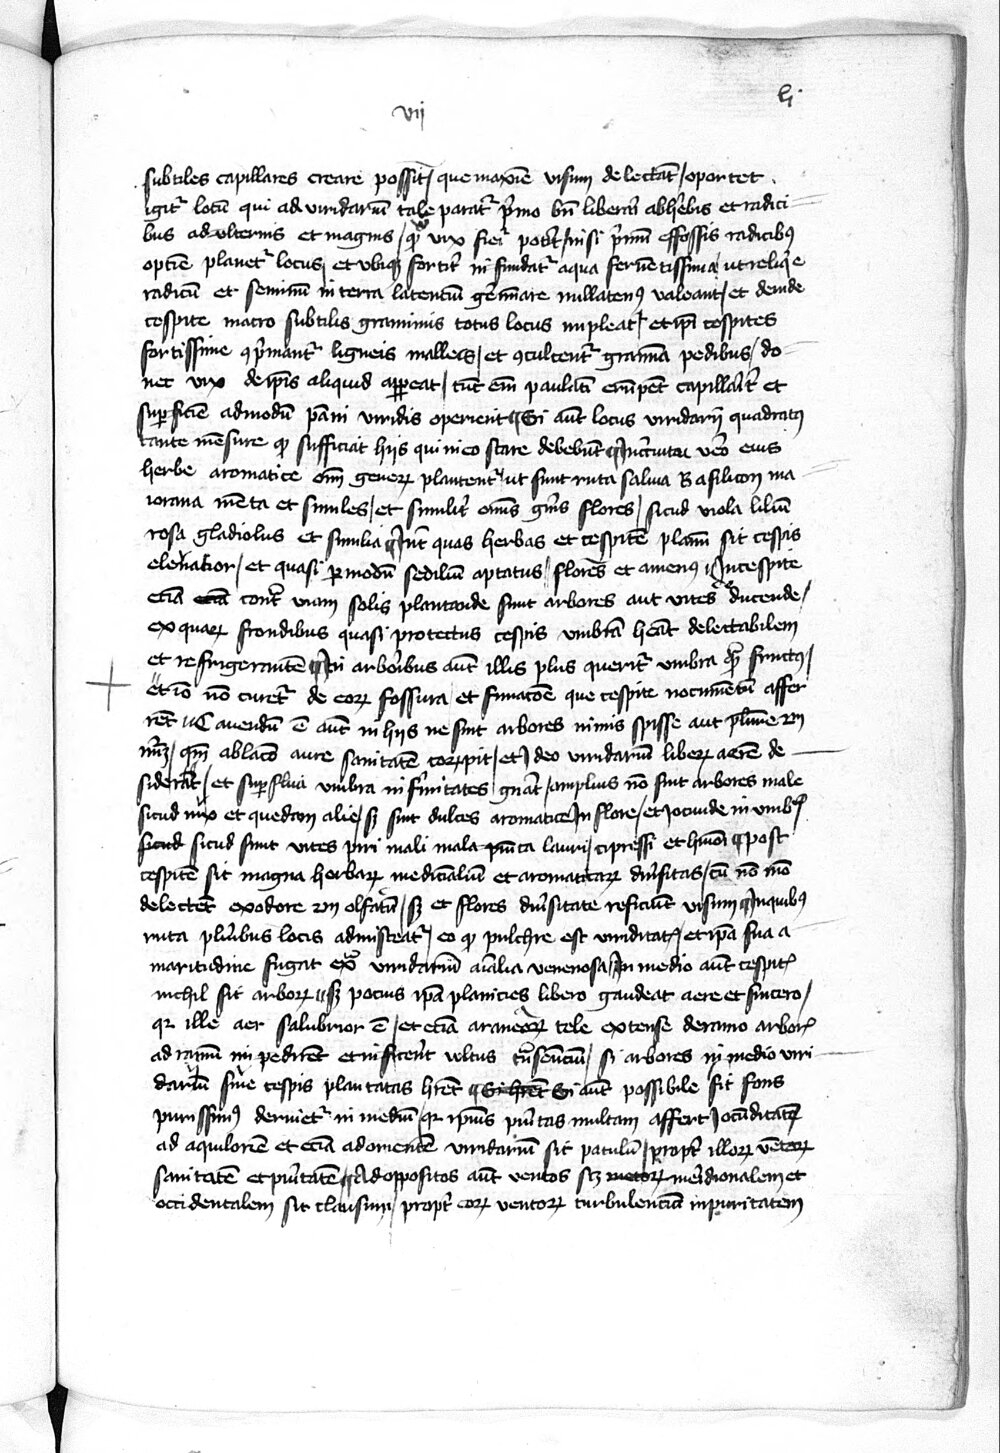 vij
li
subtiles capillares creare possit / que maxīe visum delectāt / oportet
igitʳ locū qui ad viridariū tale paratʳ p̄mo bn̄ liberari ab h̄bis et radici
bus ad vlternis et magnis / qd̄ vix fieri potīt / nisi p̄mū effossis radicibꝰ
optīe planetʳ locus / et vbiqꝫ fortitʳ infundatʳ aqua feruētissima / ut reliq̄e
radicū et seminū in terra latenciū ḡmīare nullatenꝰ valeant / et deinde
cespite macro subtilis graminis totus locus impleatʳ / et ip̄i cespites
fortissime ꝯp̄mantʳ ligneis malleis / et ꝯculcentʳ gramīa pedibus / do
nec vix de ip̄is aliquid appareat / tūc em̄ paulatī erūpēt capillarit̄ et
suꝑficiē admodū pāni viridis operient ¶ Si aūt locus viridarij quadratꝰ
tante mēsure qd̄ sufficiat hijs qui in eo stare debebūt ¶ In circuitu vero eius
herbe aromatice om̄ generꝝ plantentʳ ut sunt ruta saluia Basilicon ma
iorana mēta et similes / et similit̄ om̄is gn̄is flores / sicud viola liliū
rosa gladiolus et similia ¶ Int̄ quas herbas et cespitē planū sit cespis
eleuatior / et quasi ꝑ modū sediliū aptatus / flores et amenꝰ ¶ In cespite
eciā cont̄ viam solis plantande sunt arbores aut vites ducende /
ex quaꝝ frondibus quasi protectus cespis vmbrā heāt delectabilem
et refrigerantē ¶ In arboribus aūt illis plus queritʳ vmbra qᷓ fructus /
et iō nō curetʳ de eoꝝ fossura / et fimacōe que cespite nocumētū affer
rēt ¶ Cauendū ē aūt in hijs ne sint arbores nimis spisse aut plurime in
nūo / qm̄ ablacō aure sanitatē corrūpit / et ideo viridariū liberꝝ aerē de
siderat / et suꝑflua vmbra infirmitates gn̄at / amplius nō sint arbores male
sicud nux et quedam alie / sꝫ sint dulces aromatice in flore / et iocunde in vmbra
sicud sicud sunt vites piri mali mala punica lauri / cipressi et hmōi ¶ post
cespitē sit magna herbaꝝ medicinaliū et aromaticaꝝ diūsitas / cū nō mō
delectēt ex odore in olfatū / sꝫ et flores diūsitate reficiūt visum ¶ In quibus
ruta pluribus locis admisceatʳ / eo qd̄ pulchre est viriditatꝭ / et ip̄a sua a
maritudine fugat ex viridariū aīalia venenosa / In medio aūt cespitꝭ
nichil sit arboꝝ / sꝫ pocius ip̄a planicies libero gaudeat aere et sincero /
qꝛ ille aer salubrior ē / et eciā araneoꝝ tele extense de ramo arborꝭ
ad ramū impedirēt et inficerēt vltus tn̄seūciū / si arbores in medio viri
dariū siue cespis plantatas hrēt ¶ Si aūt possibile sit fons
purissimꝰ deriuetʳ in mediū / qꝛ ipsius puritas multam affert iocūditatē
ad aquilonē et eciā ad orientē viridariū sit patulū / propt̄ illoꝝ ventoꝝ
sanitatē et puritatē ¶ Ad oppositos aūt ventos sꝫ meridionalem et
occidentalem sit clausum / propt̄ eoꝝ ventoꝝ turbulenciā inpuritatem